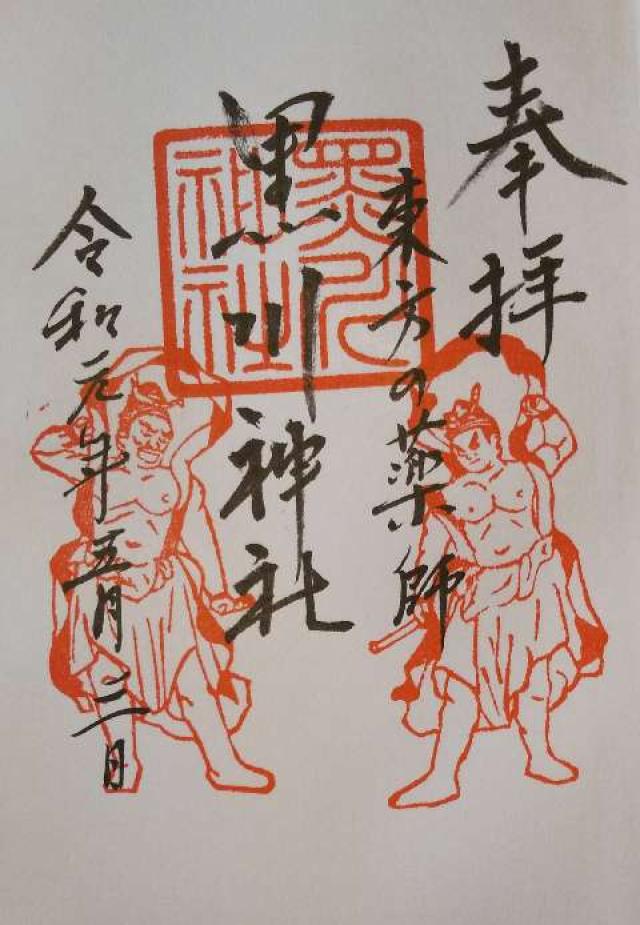 奉拝
東方の薬師
黒川神社
黒川神社
令和元年五月三日